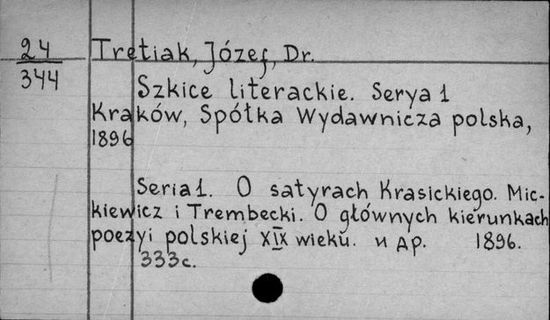 24
344
Tretiak, Józef, Dr.
Szkice literackie. Serya 1
Kraków, Spółka Wydawnicza polska,
1896
Seria 1. O satyrach Krasickiego. Mic-
kiewicz i Trembecki. O głównych kierunkach
poezyi polskiej XIX wieku. и др. 1896.
333с.